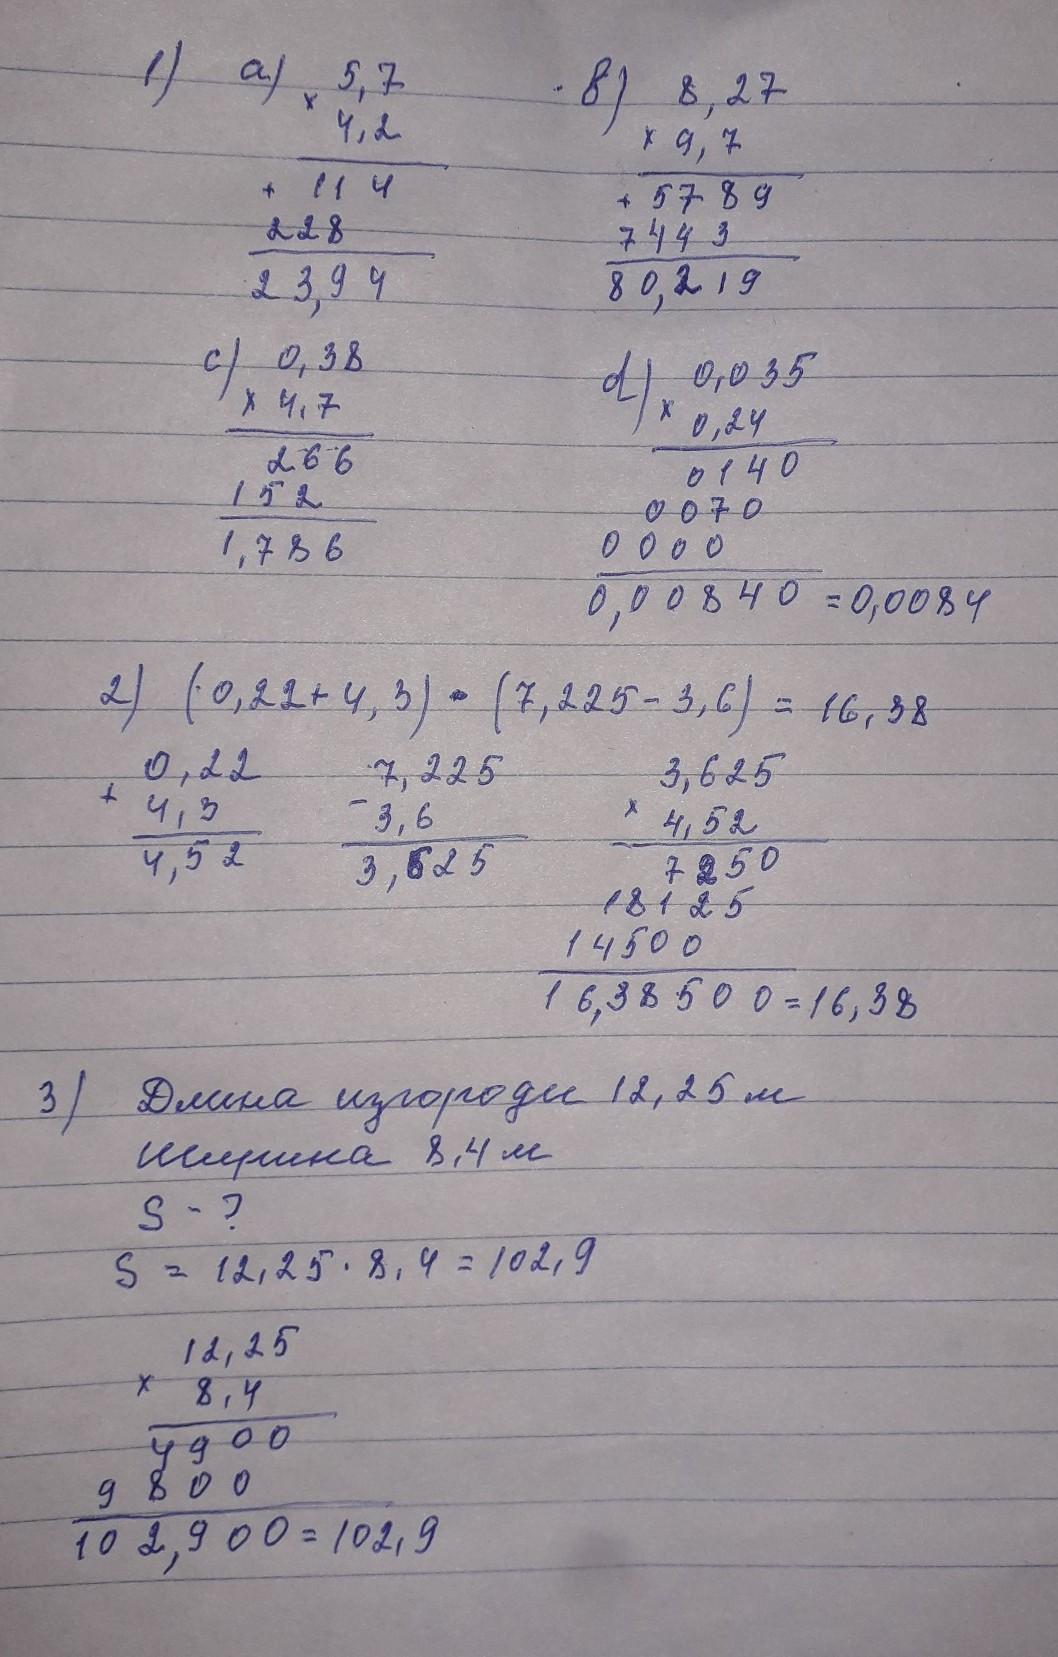 1) a) 5,7
× 4,2
+ 114
228
23,94
b) 8,27
× 9,7
+ 5789
7443
80,219
c) 0,38
× 4,7
266
152
1,786
d) 0,035
× 0,24
0140
0070
0000
0,00840 = 0,0084
2) (0,22+4,3) • (7,225-3,6) = 16,38
0,22
+ 4,3
4,52
7,225
- 3,6
3,625
3,625
× 4,52
7250
18125
14500
16,38500 = 16,38
3) Длина изгороди 12,25 м
Ширина 8,4 м
S - ?
S = 12,25 · 8,4 = 102,9
12,25
× 8,4
4900
9800
102,900 = 102,9